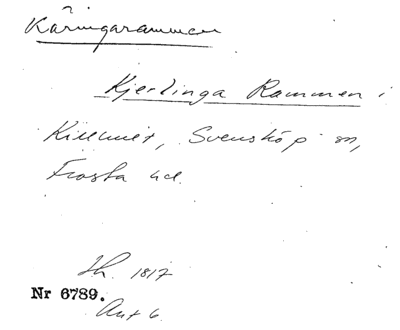 Käringarammen
Kjerlinga Rammen i
Killhult, Svensköp sn,
Frosta hd.
Sk. 1817
Nr 6789.
Akt 6